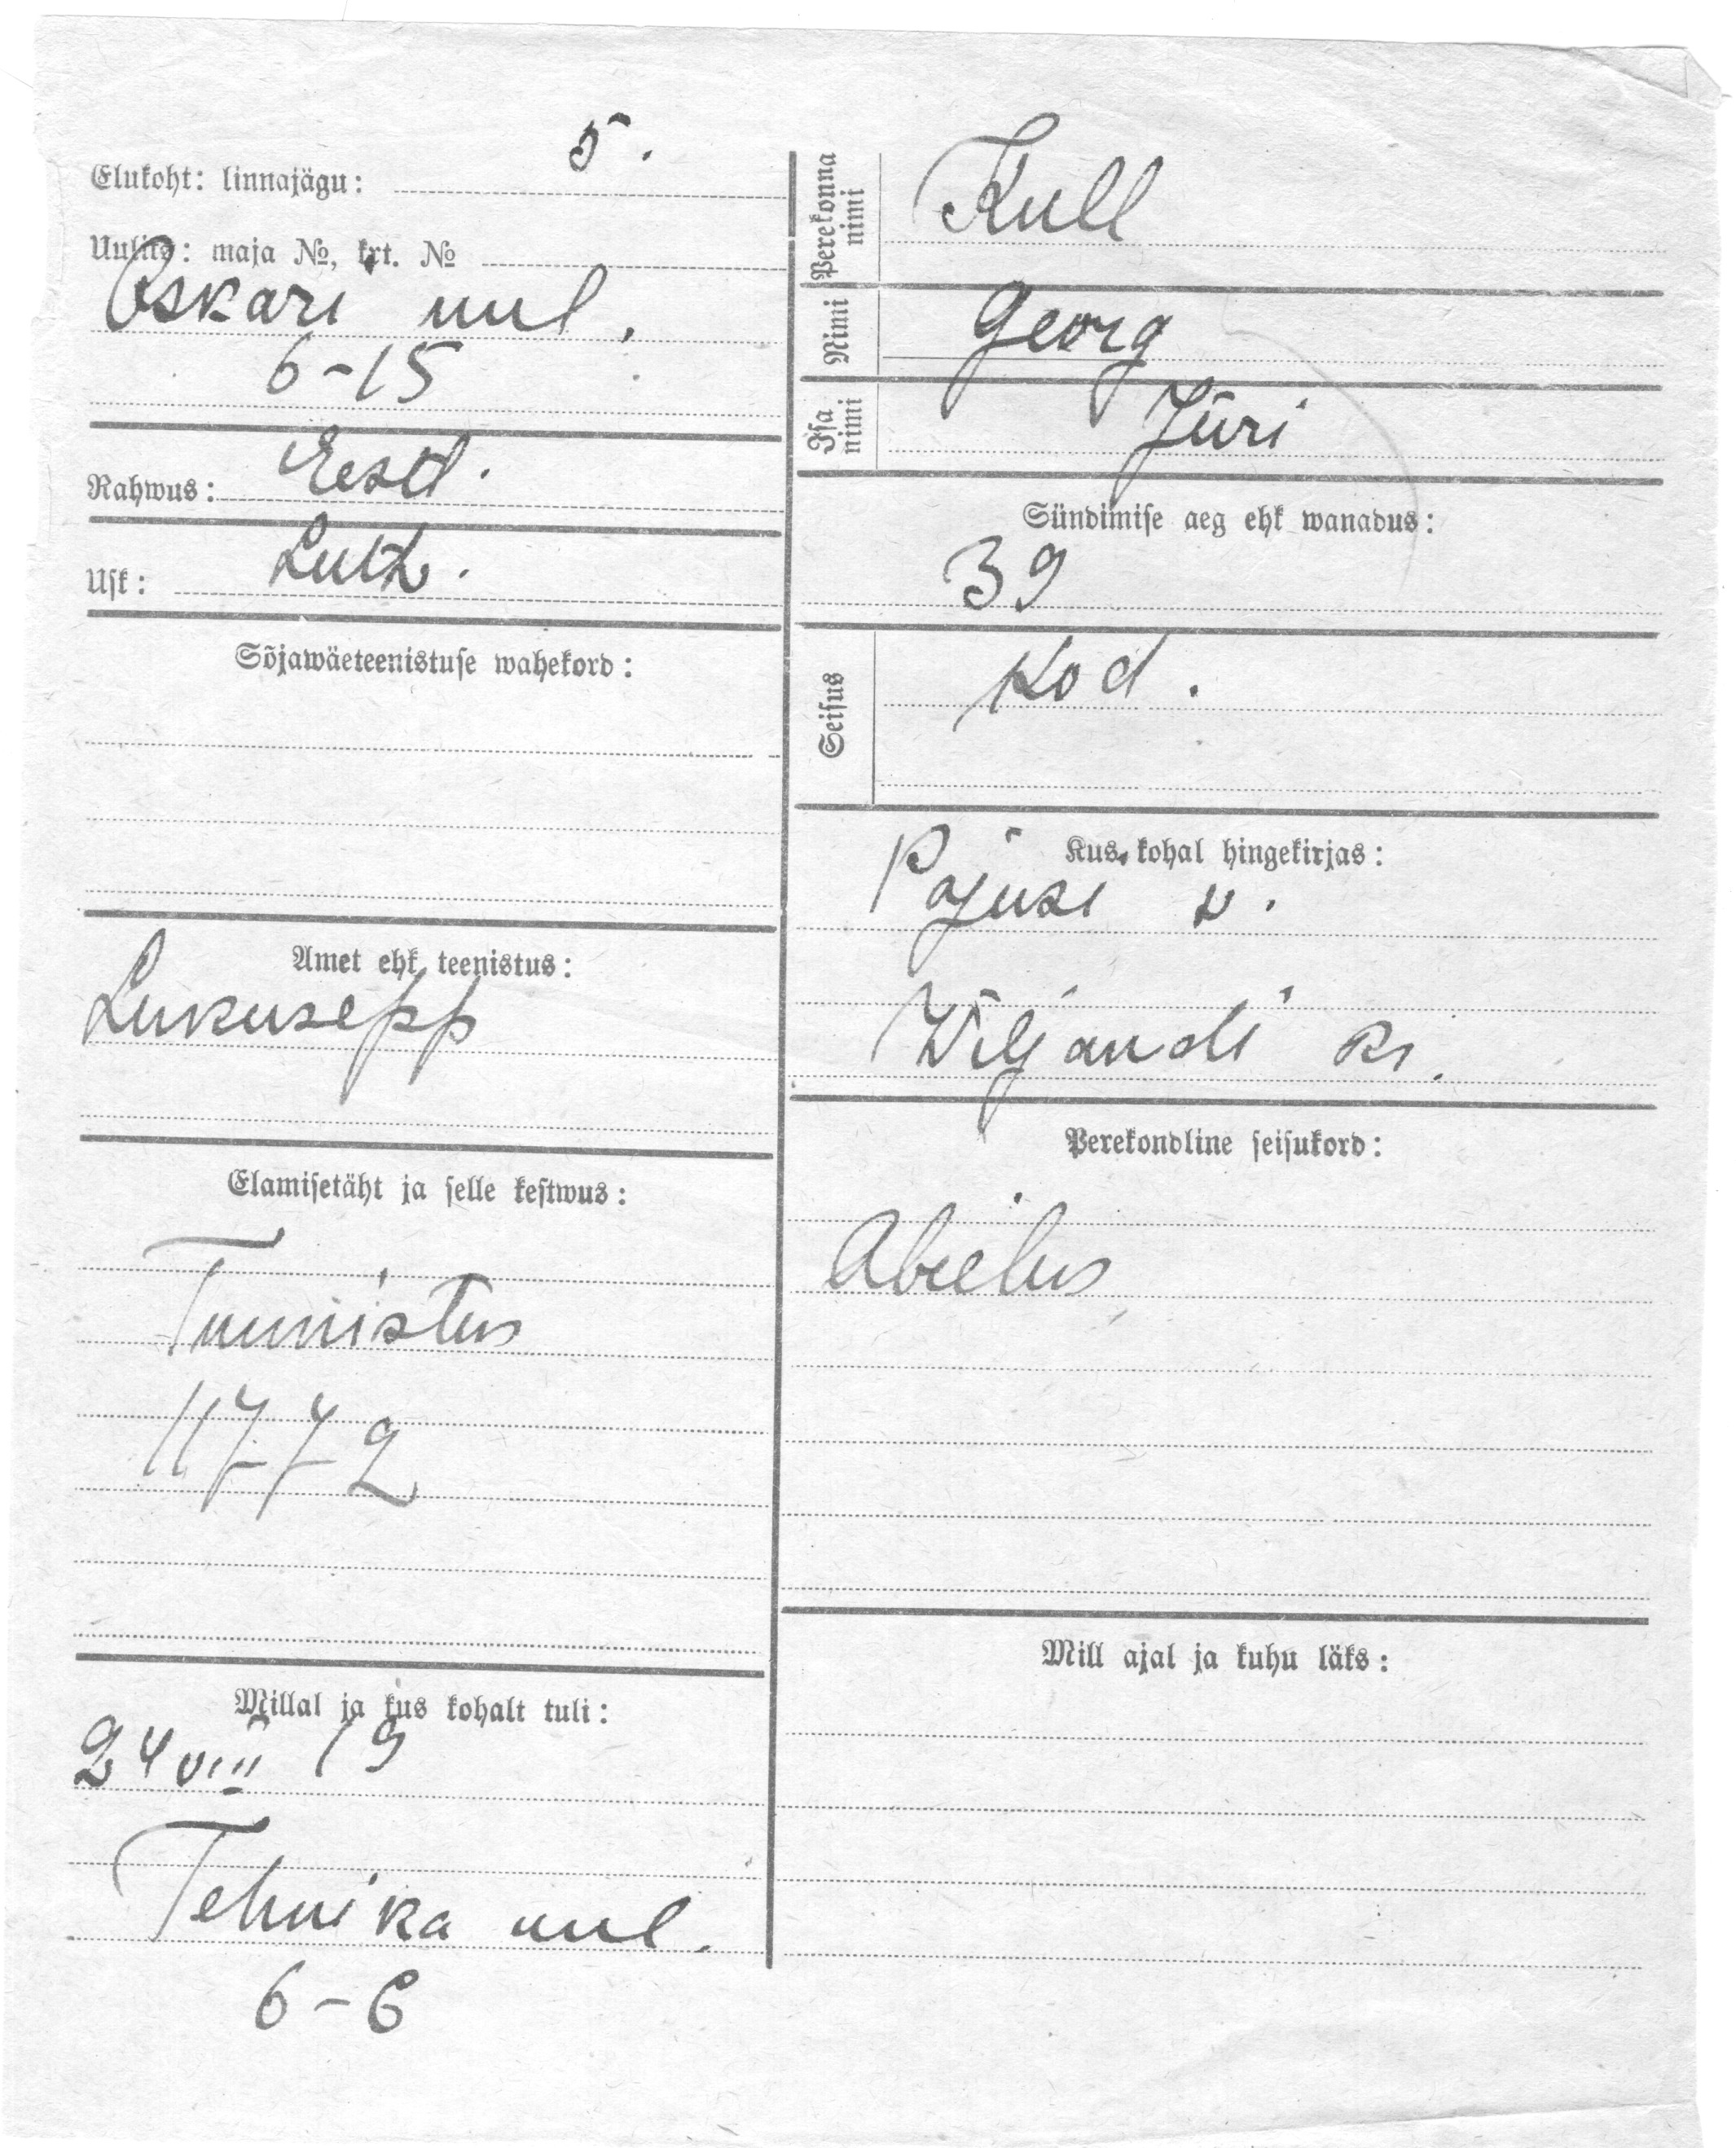 Elukoht: linnajägu: 5.
Uulits: maja №, krt. №
Oskari uul.
6-15
Rahwus: Eestl.
Usk: Luth.
Sõjawäeteenistuse wahekord:
Amet ehk teenistus:
Lukusepp
Elamisetäht ja selle kestwus:
Tunnistus
11772
Millal ja kus kohalt tuli:
24 VIII 19
Tehnika uul.
6-6
Perekonna nimi Kull
Nimi Georg
Isa nimi Jüri
Sündimise aeg ehk wanadus:
39
Seisus Kod.
Kus kohal hingekirjas:
Pajusi v.
Wiljandi kr.
Perekondline seisukord:
Abielus
Mill ajal ja kuhu läks: